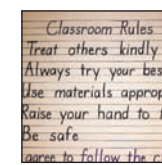 Classroom Rules
Treat others kindly
Always try your bes
Use materials approp
Raise your hand to
Be safe
agree to follow the